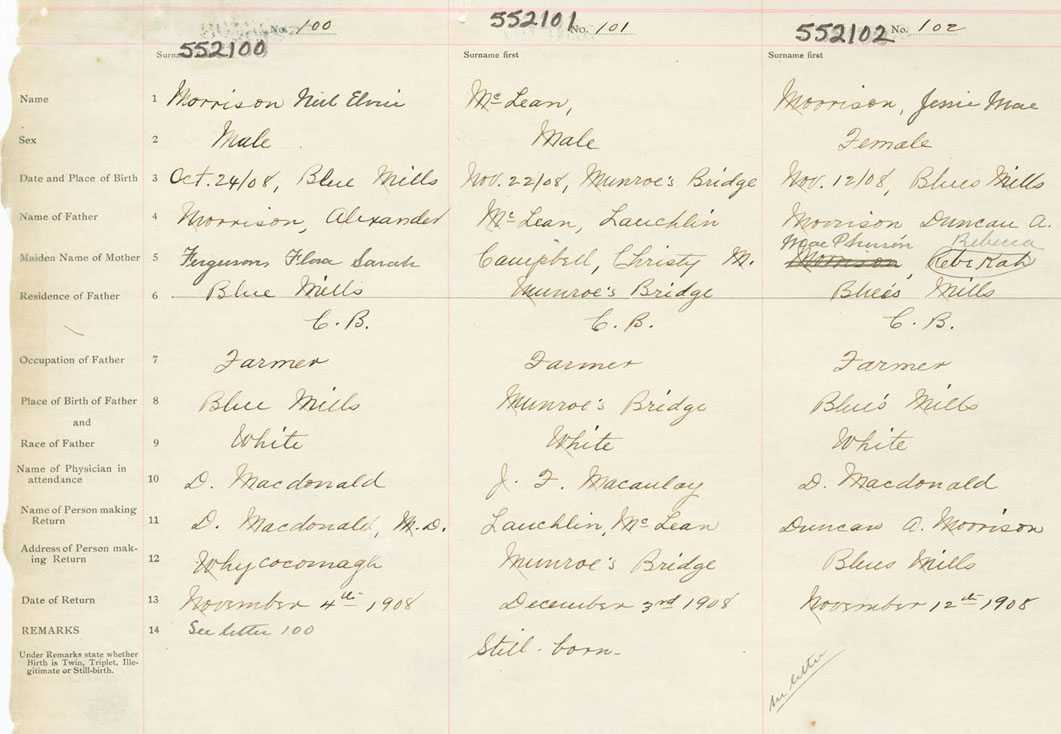 552100 No. 100
552101 No. 101
552102 No. 102
Surname first
Surname first
Name 1 Morrison Neil Elvin McLean, Morrison, Jessie Mae
Sex 2 Male Male Female
Date and Place of Birth 3 Oct. 24/08, Blue Mills Nov. 22/08, Munroe's Bridge Nov. 12/08, Blues Mills
Name of Father 4 Morrison, Alexander McLean, Lauchlin Morrison Duncan A.
MacPherson Rebecca
Maiden Name of Mother 5 Ferguson Flora Sarah Campbell, Christy M. Morrison, Rebekah
Residence of Father 6 Blue Mills Munroe's Bridge Blue's Mills
C. B. C. B. C. B.
Occupation of Father 7 Farmer Farmer Farmer
Place of Birth of Father 8 Blue Mills Munroe's Bridge Blue's Mills
and
Race of Father 9 White White White
Name of Physician in
attendance 10 D. Macdonald J. F. Macaulay D. Macdonald
Name of Person making
Return 11 D. Macdonald, M.D. Lauchlin, McLean Duncan A. Morrison
Address of Person mak-
ing Return 12 Whycocomagh Munroe's Bridge Blues Mills
Date of Return 13 November 4th 1908 December 3rd 1908 November 12th 1908
REMARKS 14 See letter 100
Still-born-
Under Remarks state whether
Birth is Twin, Triplet, Ille-
gitimate or Still-birth.
letter